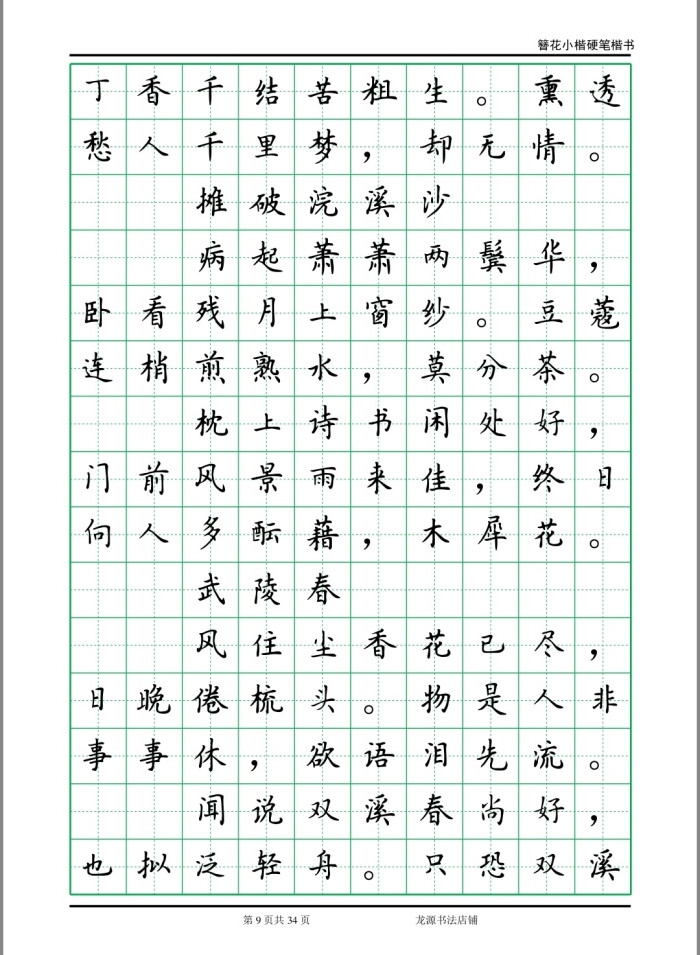 簪花小楷硬笔楷书
丁香千结苦粗生。熏透
愁人千里梦，却无情。
摊破浣溪沙
病起萧萧两鬓华，
卧看残月上窗纱。豆蔻
连梢煎熟水，莫分茶。
枕上诗书闲处好，
门前风景雨来佳，终日
向人多酝藉，木犀花。
武陵春
风住尘香花已尽，
日晚倦梳头。物是人非
事事休，欲语泪先流。
闻说双溪春尚好，
也拟泛轻舟。只恐双溪
第 9 页共 34 页 龙源书法店铺